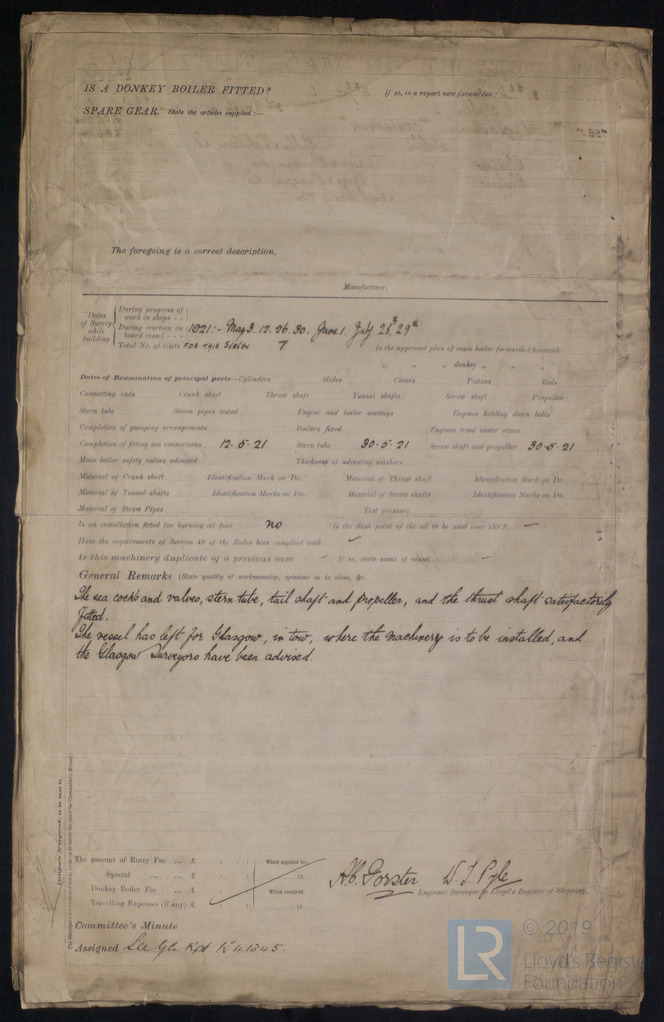 IS A DONKEY BOILER FITTED? If so, is a report now forwarded?
SPARE GEAR. State the articles supplied:—
The foregoing is a correct description,
Manufacturer.
Dates of Survey while building
During progress of work in shops - -
During erection on board vessel - - - 1921:- May 3. 12. 26. 30. June 1. July 26th 29th
Total No. of visits FOR THIS SURVEY 7 Is the approved plan of main boiler forwarded herewith
" " " donkey " " "
Dates of Examination of principal parts—Cylinders Slides Covers Pistons Rods
Connecting rods Crank shaft Thrust shaft Tunnel shafts Screw shaft Propeller
Stern tube Steam pipes tested Engine and boiler seatings Engines holding down bolts
Completion of pumping arrangements Boilers fixed Engines tried under steam
Completion of fitting sea connections 12.5.21 Stern tube 30.5.21 Screw shaft and propeller 30.5.21
Main boiler safety valves adjusted Thickness of adjusting washers
Material of Crank shaft Identification Mark on Do. Material of Thrust shaft Identification Mark on Do.
Material of Tunnel shafts Identification Marks on Do. Material of Screw shafts Identification Marks on Do.
Material of Steam Pipes Test pressure
Is an installation fitted for burning oil fuel no Is the flash point of the oil to be used over 150°F. ✓
Have the requirements of Section 49 of the Rules been complied with ✓
Is this machinery duplicate of a previous case ✓ If so, state name of vessel
General Remarks (State quality of workmanship, opinions as to class, &c.
The sea cocks and valves, stern tube, tail shaft and propeller, and the thrust shaft satisfactorily
fitted.
The vessel has left for Glasgow, in tow, where the machinery is to be installed, and
the Glasgow Surveyors have been advised.
Certificate (if required) to be sent to
The amount of Entry Fee ... £ : : When applied for,
Special ... ... £ : : 19
Donkey Boiler Fee ... £ : : When received,
Travelling Expenses (if any) £ : : 19
H.C. Forster W. J. Pyle
Engineer Surveyor to Lloyd's Register of Shipping.
Committee's Minute
Assigned See Gls Rpt No 41345.
© 2019
LR Lloyd's Register
Foundation